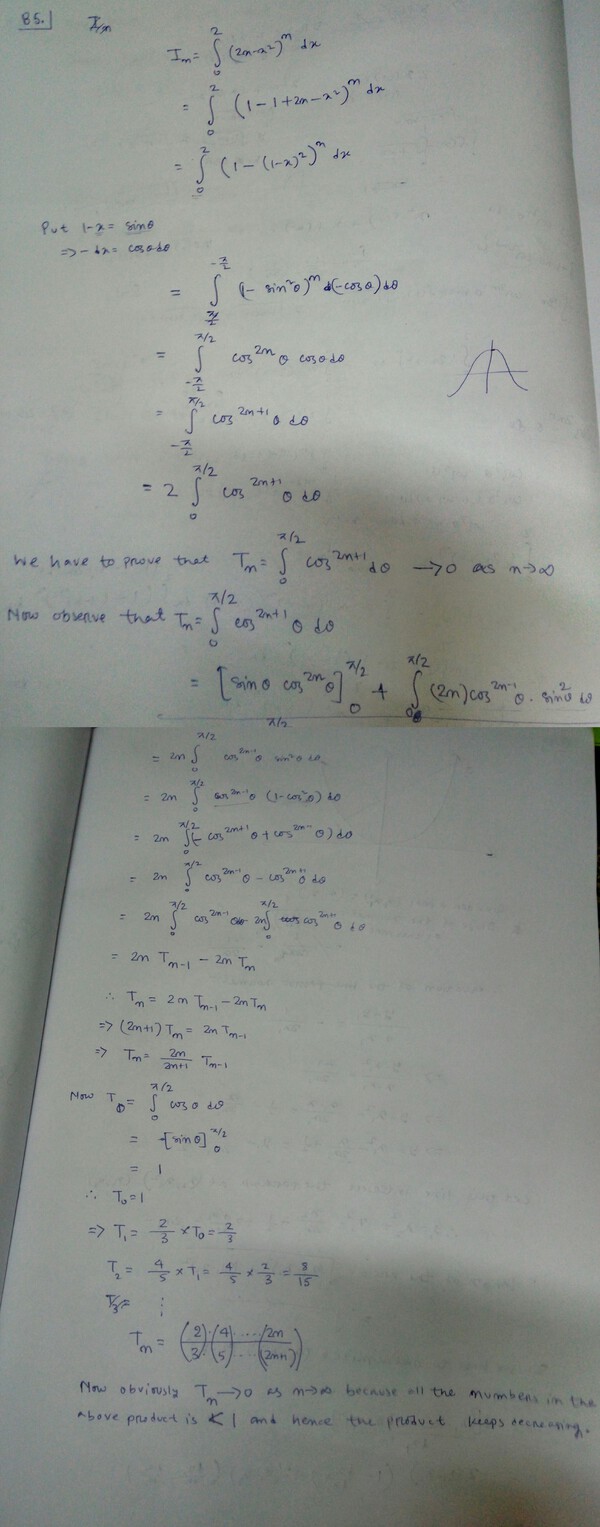 85.
I_n
I_n = ∫_0^2 (2x-x²)^n dx
= ∫_0^2 (1-1+2x-x²)^n dx
= ∫_0^2 (1-(1-x)²)^n dx
Put 1-x = sinθ
=> -dx = cosθdθ
= ∫_{π/2}^{-π/2} (1- sin²θ)^n (-cosθ)dθ
= ∫_{-π/2}^{π/2} cos^{2n} θ cosθdθ
= ∫_{-π/2}^{π/2} cos^{2n+1} θ dθ
= 2 ∫_0^{π/2} cos^{2n+1} θ dθ
We have to prove that T_n = ∫_0^{π/2} cos^{2n+1} dθ → 0 as n→∞
Now observe that T_n = ∫_0^{π/2} cos^{2n+1} θ dθ
= [sinθ cos^{2n}θ]_0^{π/2} + ∫_0^{π/2} (2n) cos^{2n-1} θ . sin²θ dθ
= 2n ∫_0^{π/2} cos^{2n-1}θ sin²θ dθ
= 2n ∫_0^{π/2} cos^{2n-1}θ (1-cos²θ) dθ
= 2n ∫_0^{π/2} (- cos^{2n+1} θ + cos^{2n-} θ) dθ
= 2n ∫_0^{π/2} cos^{2n-1}θ - cos^{2n+1}θ dθ
= 2n ∫_0^{π/2} cos^{2n-1} θdθ - 2n ∫_0^{π/2} cos^{2n+1} θ dθ
= 2n T_{n-1} - 2n T_n
∴ T_n = 2n T_{n-1} - 2n T_n
=> (2n+1) T_n = 2n T_{n-1}
=> T_n = 2n/(2n+1) T_{n-1}
Now T_0 = ∫_0^{π/2} cosθ dθ
= [sinθ]_0^{π/2}
= 1
∴ T_0 = 1
=> T_1 = 2/3 × T_0 = 2/3
T_2 = 4/5 × T_1 = 4/5 × 2/3 = 8/15
T_3 = ⋮
T_n = (2/3)·(4/5)·....(2n/(2n+1))
Now obviously T_n → 0 as n→∞ because all the numbers in the
above product is < 1 and hence the product keeps decreasing.